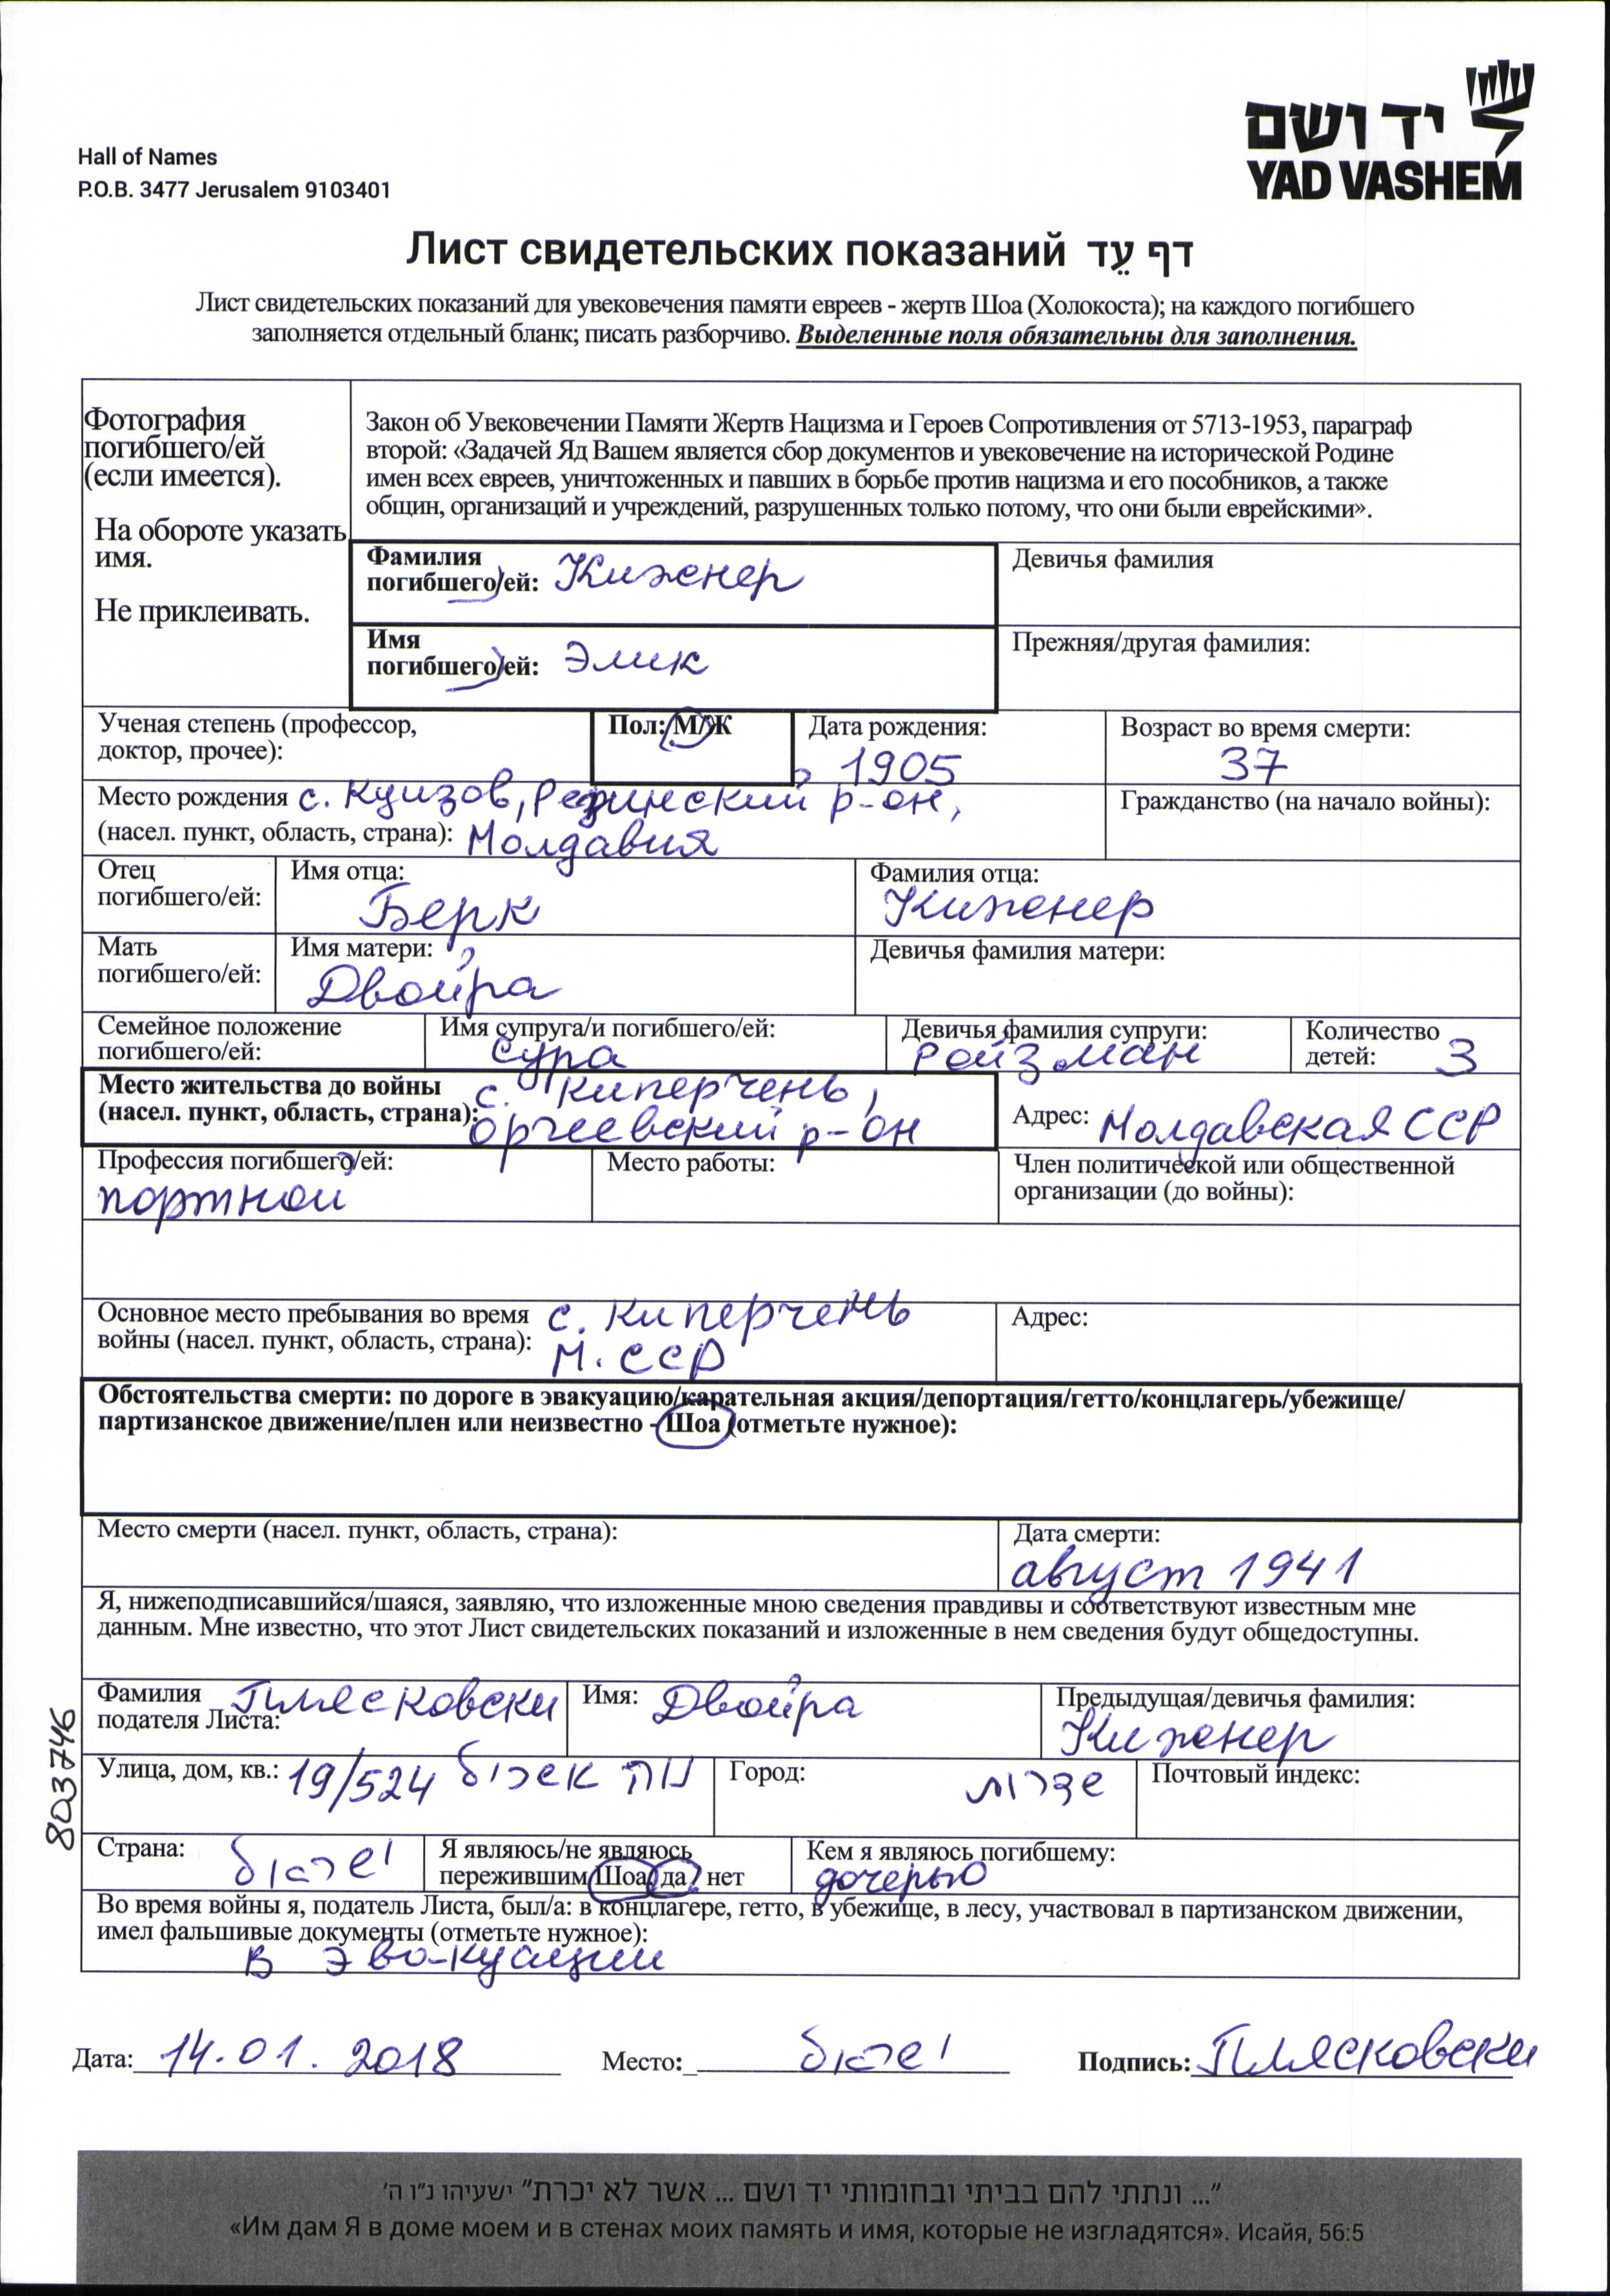 Hall of Names
P.O.B. 3477 Jerusalem 9103401
יד ושם
YAD VASHEM
Лист свидетельских показаний דף עֵד
Лист свидетельских показаний для увековечения памяти евреев - жертв Шоа (Холокоста); на каждого погибшего
заполняется отдельный бланк; писать разборчиво. Выделенные поля обязательны для заполнения.
Фотография
погибшего/ей
(если имеется).
На обороте указать
имя.
Не приклеивать.
Закон об Увековечении Памяти Жертв Нацизма и Героев Сопротивления от 5713-1953, параграф
второй: «Задачей Яд Вашем является сбор документов и увековечение на исторической Родине
имен всех евреев, уничтоженных и павших в борьбе против нацизма и его пособников, а также
общин, организаций и учреждений, разрушенных только потому, что они были еврейскими».
Фамилия
погибшего/ей: Кижнер
Девичья фамилия
Имя
погибшего/ей: Элик
Прежняя/другая фамилия:
Ученая степень (профессор,
доктор, прочее):
Пол: М/Ж
Дата рождения:
1905
Возраст во время смерти:
37
Место рождения с. Куизов, Резинский р-он,
(насел. пункт, область, страна): Молдавия
Гражданство (на начало войны):
Отец
погибшего/ей:
Имя отца:
Берк
Фамилия отца:
Кижнер
Мать
погибшего/ей:
Имя матери:
Двойра
Девичья фамилия матери:
Семейное положение
погибшего/ей:
Имя супруга/и погибшего/ей:
Сура
Девичья фамилия супруги:
Ройзман
Количество
детей: 3
Место жительства до войны с. Киперчень,
(насел. пункт, область, страна): Оргеевский р-он
Адрес: Молдавская ССР
Профессия погибшего/ей:
портной
Место работы:
Член политической или общественной
организации (до войны):
Основное место пребывания во время с. Киперчень
войны (насел. пункт, область, страна): М. ССР
Адрес:
Обстоятельства смерти: по дороге в эвакуацию/карательная акция/депортация/гетто/концлагерь/убежище/
партизанское движение/плен или неизвестно - Шоа (отметьте нужное):
Место смерти (насел. пункт, область, страна):
Дата смерти:
август 1941
Я, нижеподписавшийся/шаяся, заявляю, что изложенные мною сведения правдивы и соответствуют известным мне
данным. Мне известно, что этот Лист свидетельских показаний и изложенные в нем сведения будут общедоступны.
Фамилия
подателя Листа: Плясковски
Имя: Двойра
Предыдущая/девичья фамилия:
Кижнер
Улица, дом, кв.: 19/524 נוה אשכול
Город: שדרות
Почтовый индекс:
Страна: ישראל
Я являюсь/не являюсь
пережившим Шоа да / нет
Кем я являюсь погибшему:
дочерью
Во время войны я, податель Листа, был/а: в концлагере, гетто, в убежище, в лесу, участвовал в партизанском движении,
имел фальшивые документы (отметьте нужное):
в эвокуации
803746
Дата: 14.01.2018 Место: ישראל Подпись: Плясковски
"... ונתתי להם בביתי ובחומותי יד ושם ... אשר לא יכרת" ישעיהו נ"ו ה'
«Им дам Я в доме моем и в стенах моих память и имя, которые не изгладятся». Исайя, 56:5